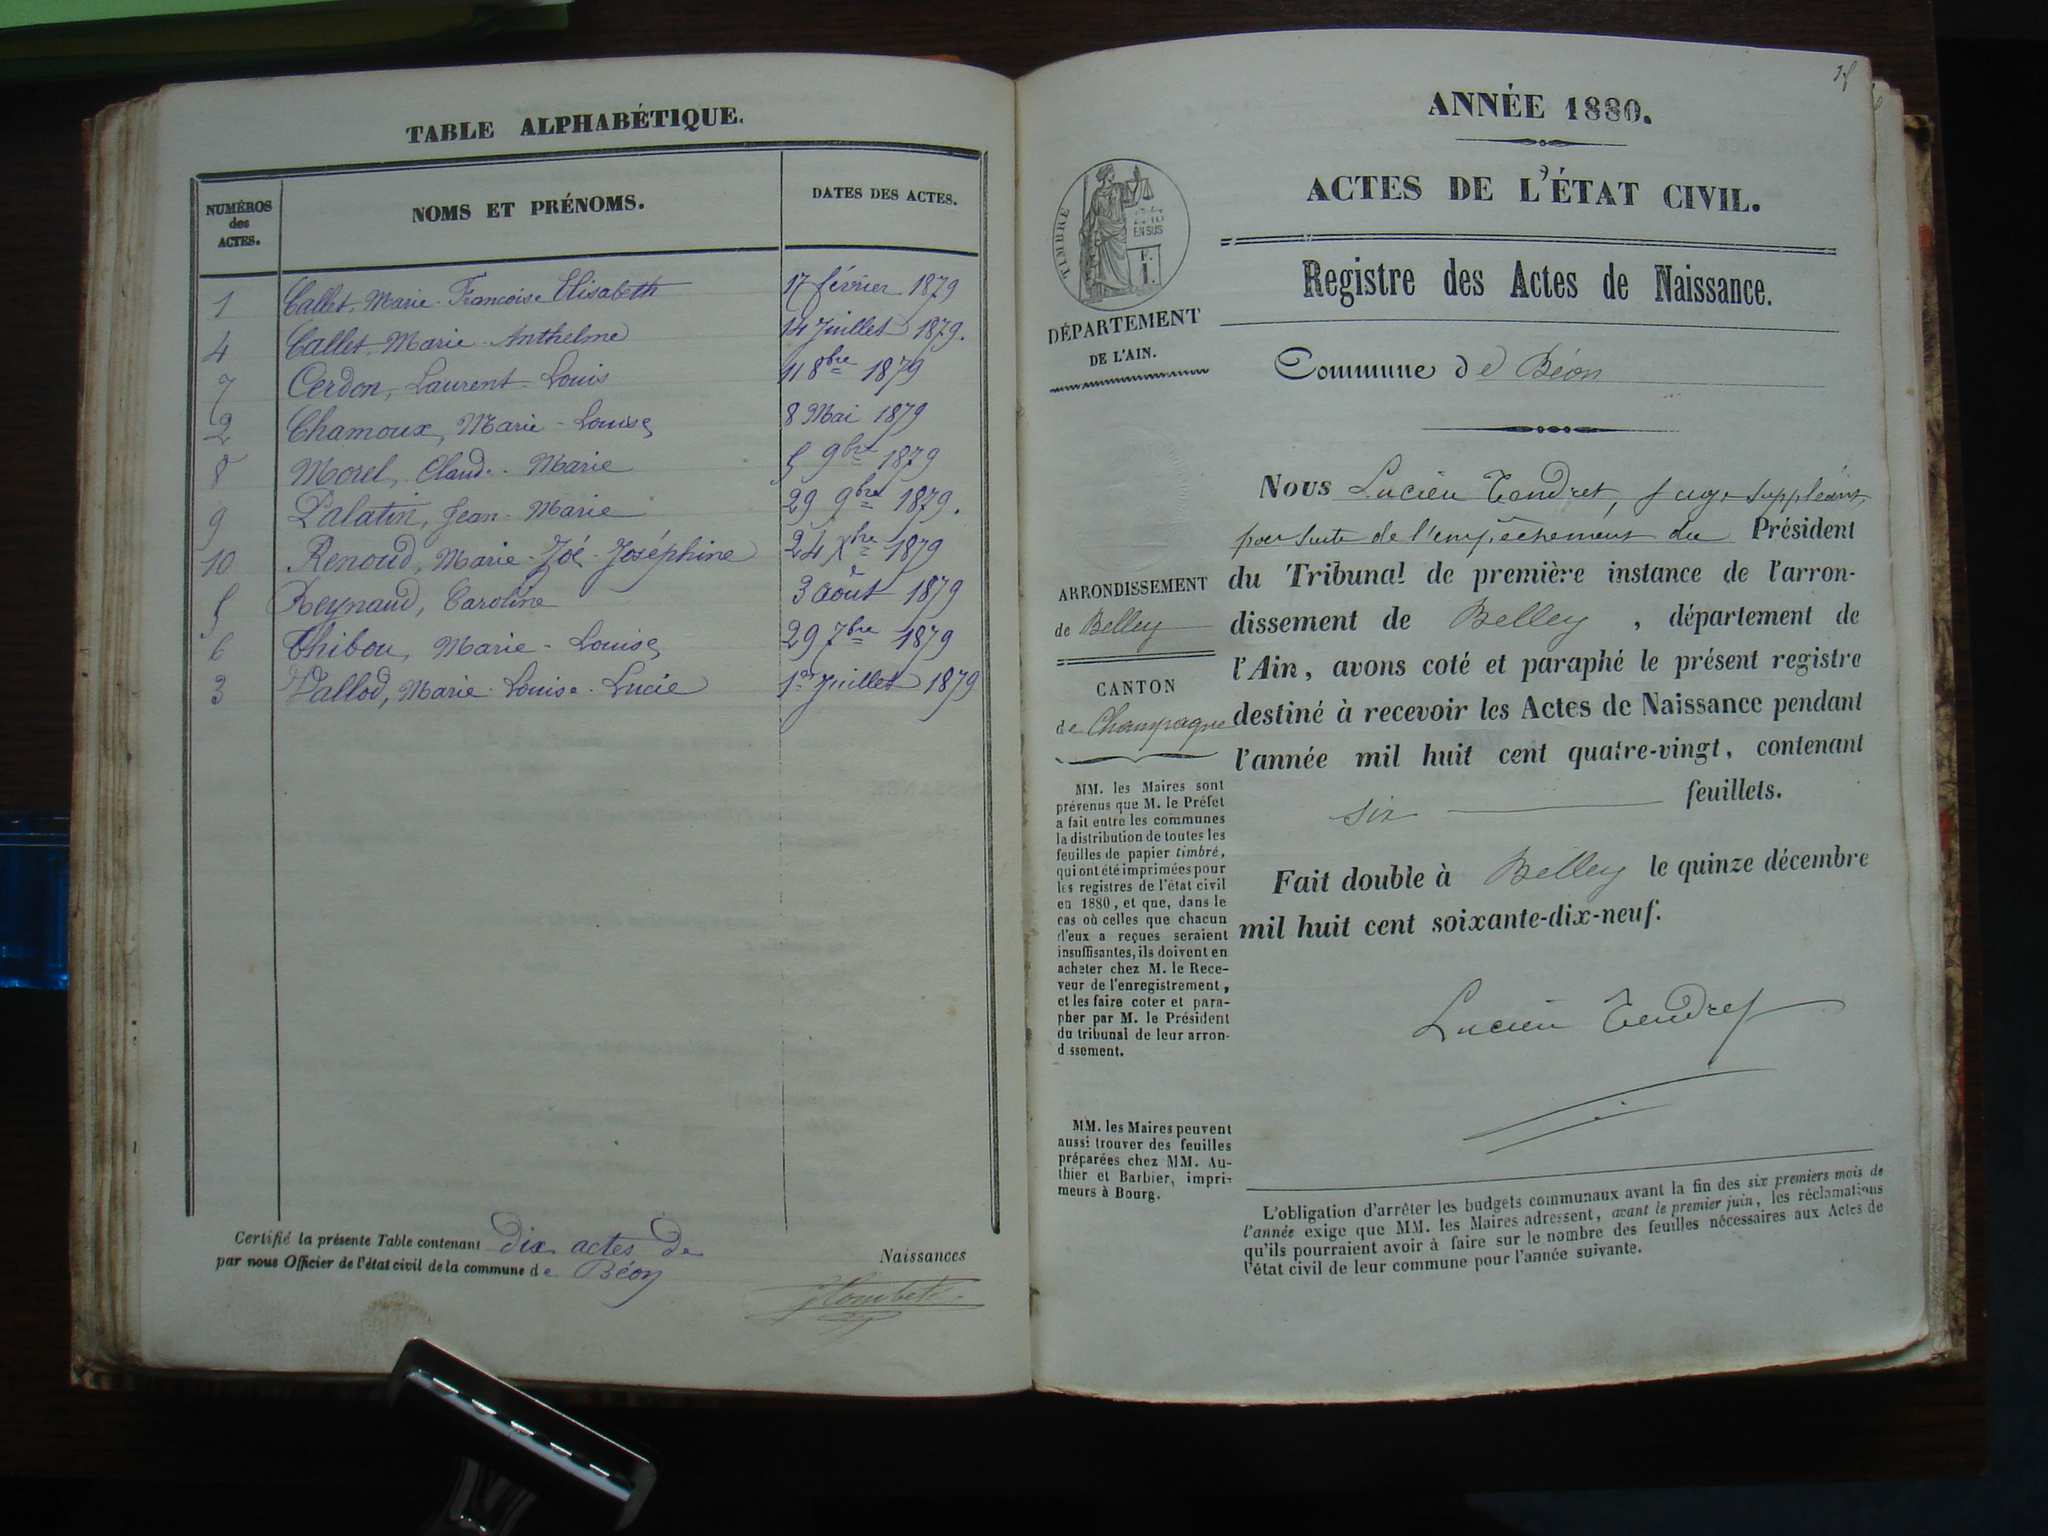 TABLE ALPHABÉTIQUE.
NUMÉROS des ACTES. NOMS ET PRÉNOMS. DATES DES ACTES.
1 Callet, Marie-Francoise Elisabeth 17 février 1879
4 Callet, Marie-Anthelme 14 Juillet 1879.
7 Cerdon, Laurent-Louis 11 8bre 1879
2 Chamoux, Marie-Louise 8 Mai 1879
8 Morel, Claude-Marie 5 9bre 1879
9 Palatin, Jean-Marie 29 9bre 1879.
10 Renoud, Marie-Zoé-Joséphine 24 Xbre 1879
5 Reynaud, Caroline 3 août 1879
6 Thibou, Marie-Louise 29 7bre 1879
3 Vallod, Marie-Louise-Lucie 1er Juillet 1879
Certifié la présente Table contenant Dix actes de Naissances
par nous Officier de l'état civil de la commune de Béon
ANNÉE 1880.
ACTES DE L'ÉTAT CIVIL.
Registre des Actes de Naissance.
TIMBRE
EN SUS
DÉPARTEMENT
DE L'AIN.
Commune de Béon
ARRONDISSEMENT
de Belley
CANTON
de Champagne
Nous Lucien Tendret, juge suppléant,
par suite de l'empêchement du Président
du Tribunal de première instance de l'arron-
dissement de Belley, département de
l'Ain, avons coté et paraphé le présent registre
destiné à recevoir les Actes de Naissance pendant
l'année mil huit cent quatre-vingt, contenant
six feuillets.
Fait double à Belley le quinze décembre
mil huit cent soixante-dix-neuf.
Lucien Tendret
MM. les Maires sont
prévenus que M. le Préfet
a fait entre les communes
la distribution de toutes les
feuilles de papier timbré,
qui ont été imprimées pour
les registres de l'état civil
en 1880, et que, dans le
cas où celles que chacun
d'eux a reçues seraient
insuffisantes, ils doivent en
acheter chez M. le Rece-
veur de l'enregistrement,
et les faire coter et para-
pher par M. le Président
du tribunal de leur arron-
dissement.
MM. les Maires peuvent
aussi trouver des feuilles
préparées chez MM. Au-
thier et Barbier, impri-
meurs à Bourg.
L'obligation d'arrêter les budgets communaux avant la fin des six premiers mois de
l'année exige que MM. les Maires adressent, avant le premier juin, les réclamations
qu'ils pourraient avoir à faire sur le nombre des feuilles nécessaires aux Actes de
l'état civil de leur commune pour l'année suivante.